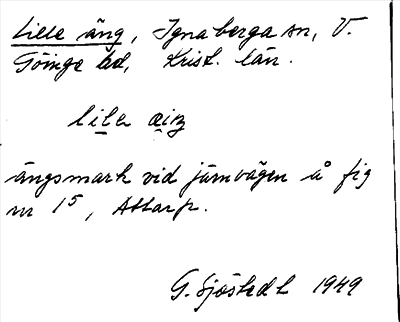 Lille äng, Ignaberga sn, V.
Göinge hd, Krist. län.
lile æiŋ
ängsmark vid järnvägen å fig
nr 15, Attarp.
G. Sjöstedt 1949